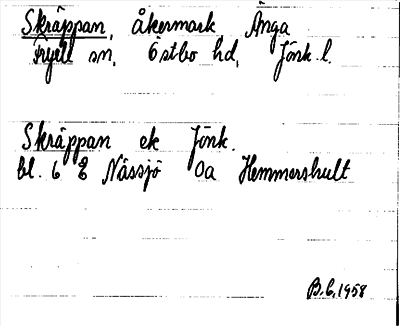 Skräppan, åkermark Änga
Fryele sn, Östbo hd, Jönk. l.
Skräppan ek Jönk.
bl. 6 E Nässjö 0a Hemmershult
B.L. 1958